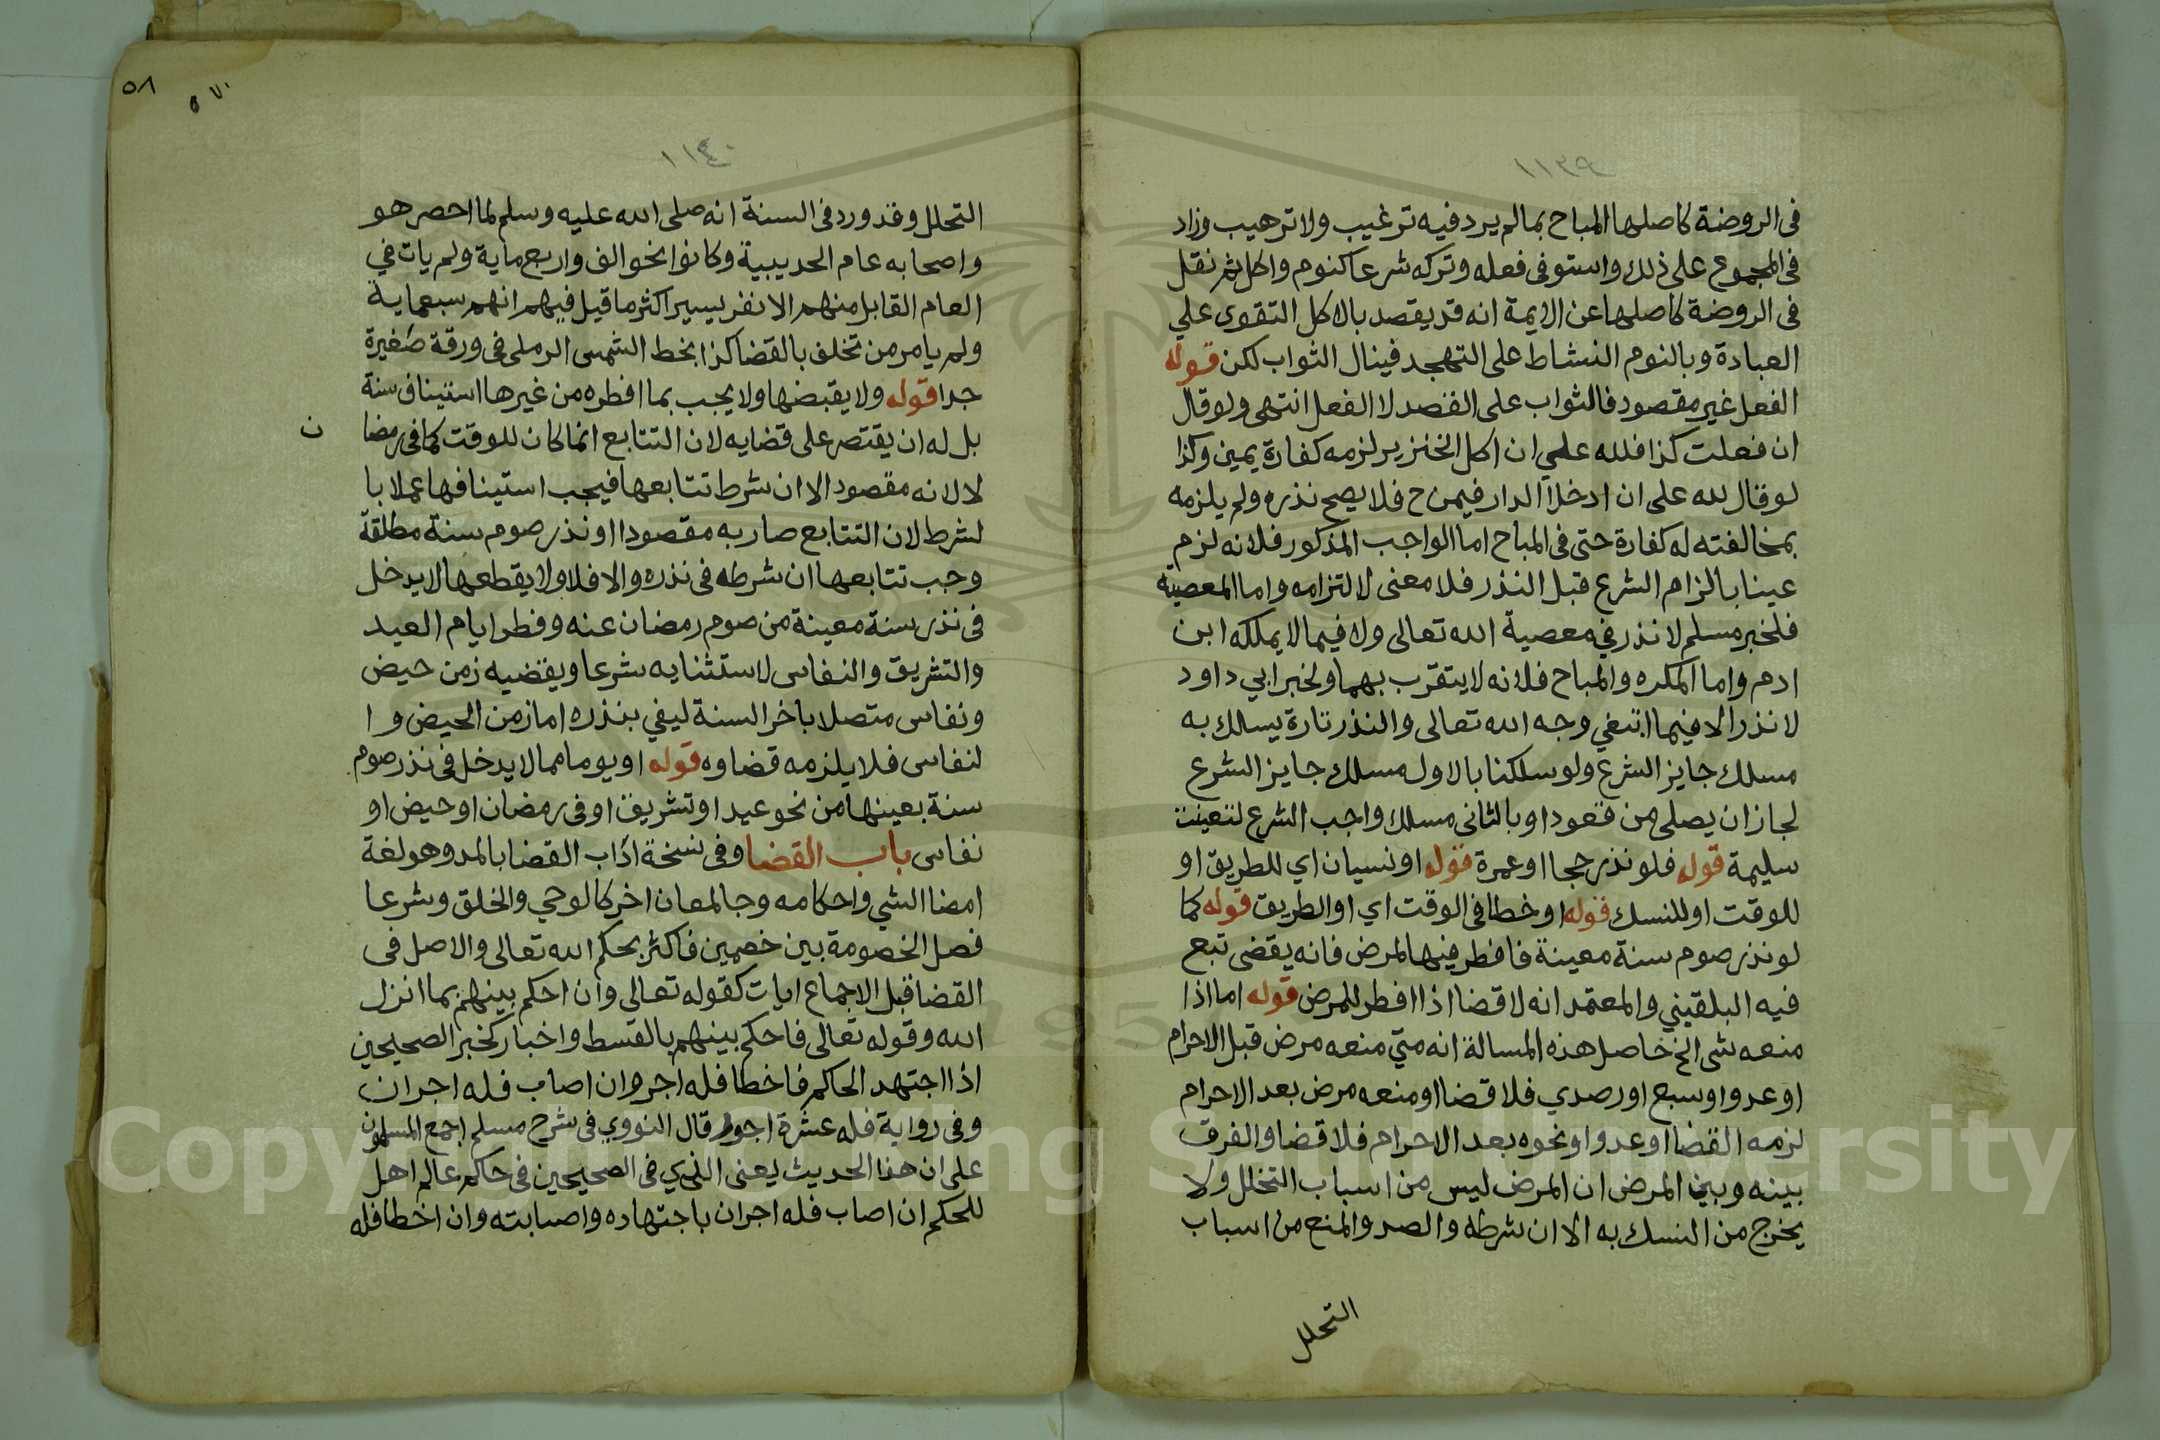 ١١٣٩
فى الروضة كاصلها المباح بمالم يرد فيه ترغيب ولا ترهيب وزاد
فى المجموع على ذلك واستوفى فعله وتركه شرعا كنوم واكل ثم نقل
فى الروضة كاصلها عن الايمة انه قد يقصد بالاكل التقوى علي
العبادة وبالنوم النشاط على التهجد فينال الثواب لكن قوله
الفعل غير مقصود فالثواب على القصد لا الفعل انتهى ولو قال
ان فعلت كذا فلله علي ان اكل الخنزير لزمه كفارة يمين وكذا
لو قال لله على ان ادخل الدار فيمن ح فلا يصح نذره ولم يلزمه
بمخالفته له كفارة حتى فى المباح اما الواجب المذكور فلانه لزم
عينا بالزام الشرع قبل النذر فلا معنى لالتزامه واما المعصية
فلخبر مسلم لا نذر في معصية الله تعالى ولا فيما لا يملكه ابن
ادم واما المكره والمباح فلانه لا يتقرب بهما ولخبر ابي داود
لا نذر الا فيما ابتغي وجه الله تعالى والنذر تارة يسلك به
مسلك جايز الشرع ولو سلكنا بالاول مسلك جايز الشرع
لجاز ان يصلى من قعود او بالثانى مسلك واجب الشرع لتعينت
سليمة قوله فلو نذر حجا او عمرة قوله او نسيان اي للطريق او
للوقت او للنسك قوله او خطا فى الوقت اي او الطريق قوله كما
لو نذر صوم سنة معينة فافطر فيها لمرض فانه يقضى تبع
فيه البلقيني والمعتمد انه لا قضا اذا افطر للمرض قوله اما اذا
منعه شى الخ حاصل هذه المسالة انه متي منعه مرض قبل الاحرام
او عدو او سبع او رصدي فلا قضا او منعه مرض بعد الاحرام
لزمه القضا او عدوا ونحوه بعد الاحرام فلا قضا والفرق
بينه وبين المرض ان المرض ليس من اسباب التحلل ولا
يخرج من النسك به الا ان شرطه والصد والمنع من اسباب
التحلل
٥٨
١١٤٠
التحلل وقد ورد فى السنة انه صلى الله عليه وسلم لما احصر هو
واصحابه عام الحديبية وكانوا نحو الف واربع ماية ولم يات في
العام القابل منهم الا نفر يسير اكثر ما قيل فيهم انهم سبعماية
ولم يامر من تخلف بالقضا كذا بخط الشمس الرملى فى ورقة صغيرة
جدا قوله ولا يقبضها ولا يجب بما افطره من غيرها استينافى سنة
بل له ان يقتصر على قضايه لان التتابع انما كان للوقت كما فى رمضا
ن
لا لانه مقصود الا ان شرط تتابعها فيجب استينافها عملا با
لشرط لان التتابع صار به مقصودا او نذر صوم سنة مطلقة
وجب تتابعها ان شرطه فى نذره والا فلا ولا يقطعها لا يدخل
فى نذر سنة معينة من صوم رمضان عنه وفطر ايام العيد
والتشريق والنفاس لاستثنايه شرعا ويقضيه زمن حيض
ونفاس متصلا باخر السنة ليفي بنذره اما زمن الحيض وا
لنفاس فلا يلزمه قضاوه قوله او يوما مما لا يدخل فى نذر صوم
سنة بعينها من نحو عيد او تشريق او فى رمضان او حيض او
نفاس باب القضا وفى نسخة اداب القضا بالمد وهو لغة
امضا الشي واحكامه وجا لمعان اخر كالوحي والخلق وشرعا
فصل الخصومة بين خصمين فاكثر بحكم الله تعالى والاصل فى
القضا قبل الاجماع ايات كقوله تعالى وان احكم بينهم بما انزل
الله وقوله تعالى فاحكم بينهم بالقسط واخبار كخبر الصحيحين
اذا اجتهد الحاكم فاخطا فله اجر وان اصاب فله اجران
وفى رواية فله عشرة اجور قال النووي فى شرح مسلم اجمع المسلمون
على ان هذا الحديث يعنى الذي فى الصحيحين فى حاكم عالم اهل
للحكم ان اصاب فله اجران باجتهاده واصابته وان اخطا فله
Copyright © King Saud University